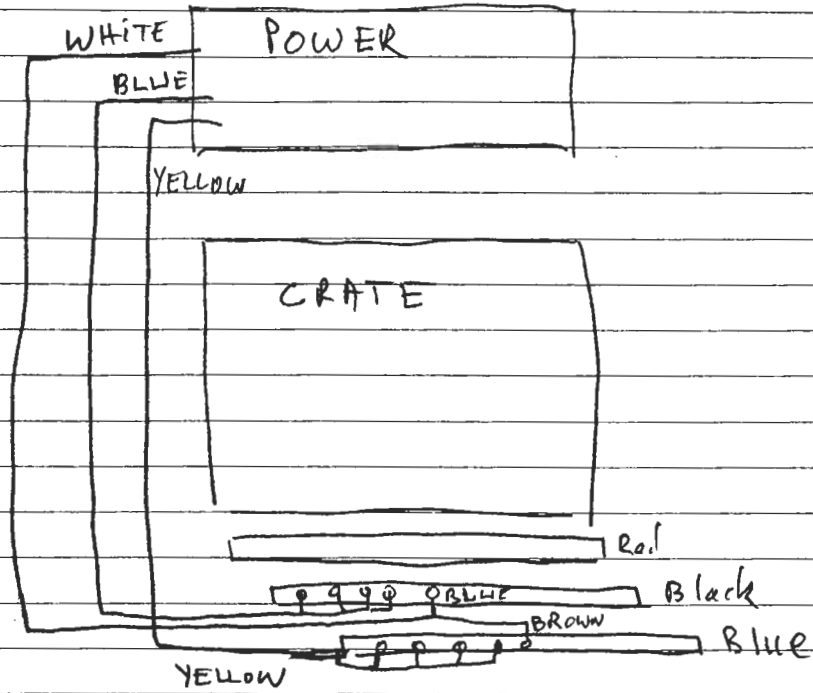 WHITE
POWER
BLUE
YELLOW
CRATE
Rail
BLUE
Black
BROWN
Blue
YELLOW